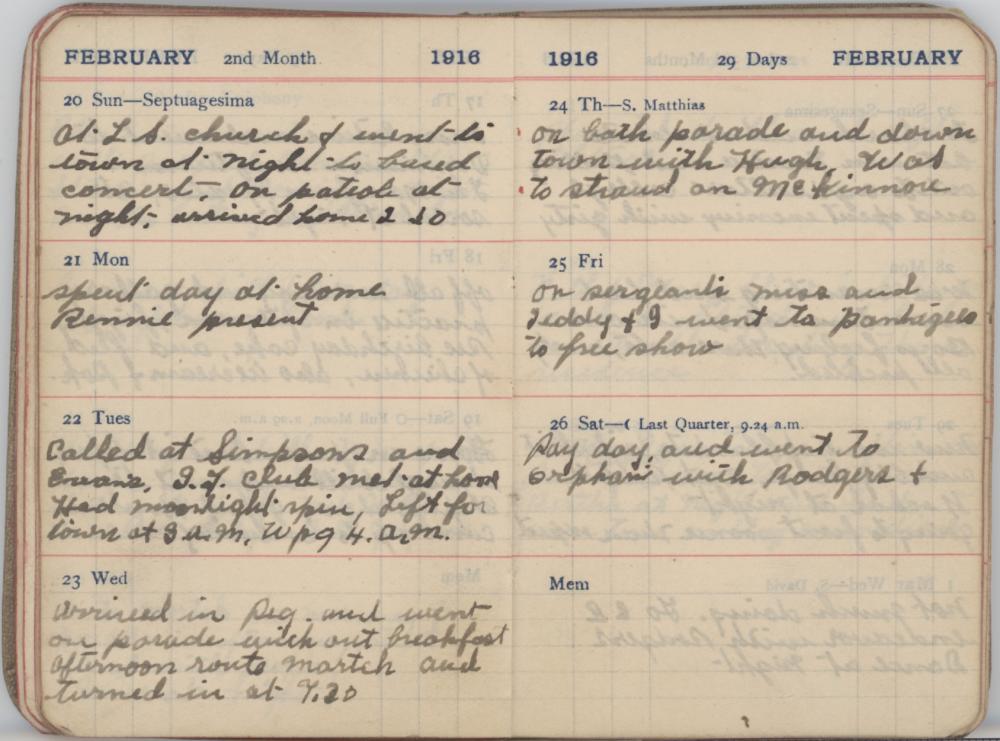 FEBRUARY 2nd Month 1916
20 Sun—Septuagesima
at L S. church & went to
town at night to band
concert, on patrol at
night, arrived home 2 30
21 Mon
spent day at home
Rennie present
22 Tues
Called at Simpsons and
Evans, I.F. Club met at home
Had moonlight spin, Left for
town at 3 a.m, Wpg 4. a.m.
23 Wed
arrived in Peg. and went
on parade with out breakfast
afternoon route martch and
turned in at 7.20
1916 29 Days FEBRUARY
24 Th—S. Matthias
on bath parade and down
town with Hugh, Was
to strand an McKinnon
25 Fri
on sergeants mess and
Teddy & I went to Pantagees
to free show
26 Sat—( Last Quarter, 9.24 a.m.
Pay day, and went to
orpham with Rodgers +
Mem